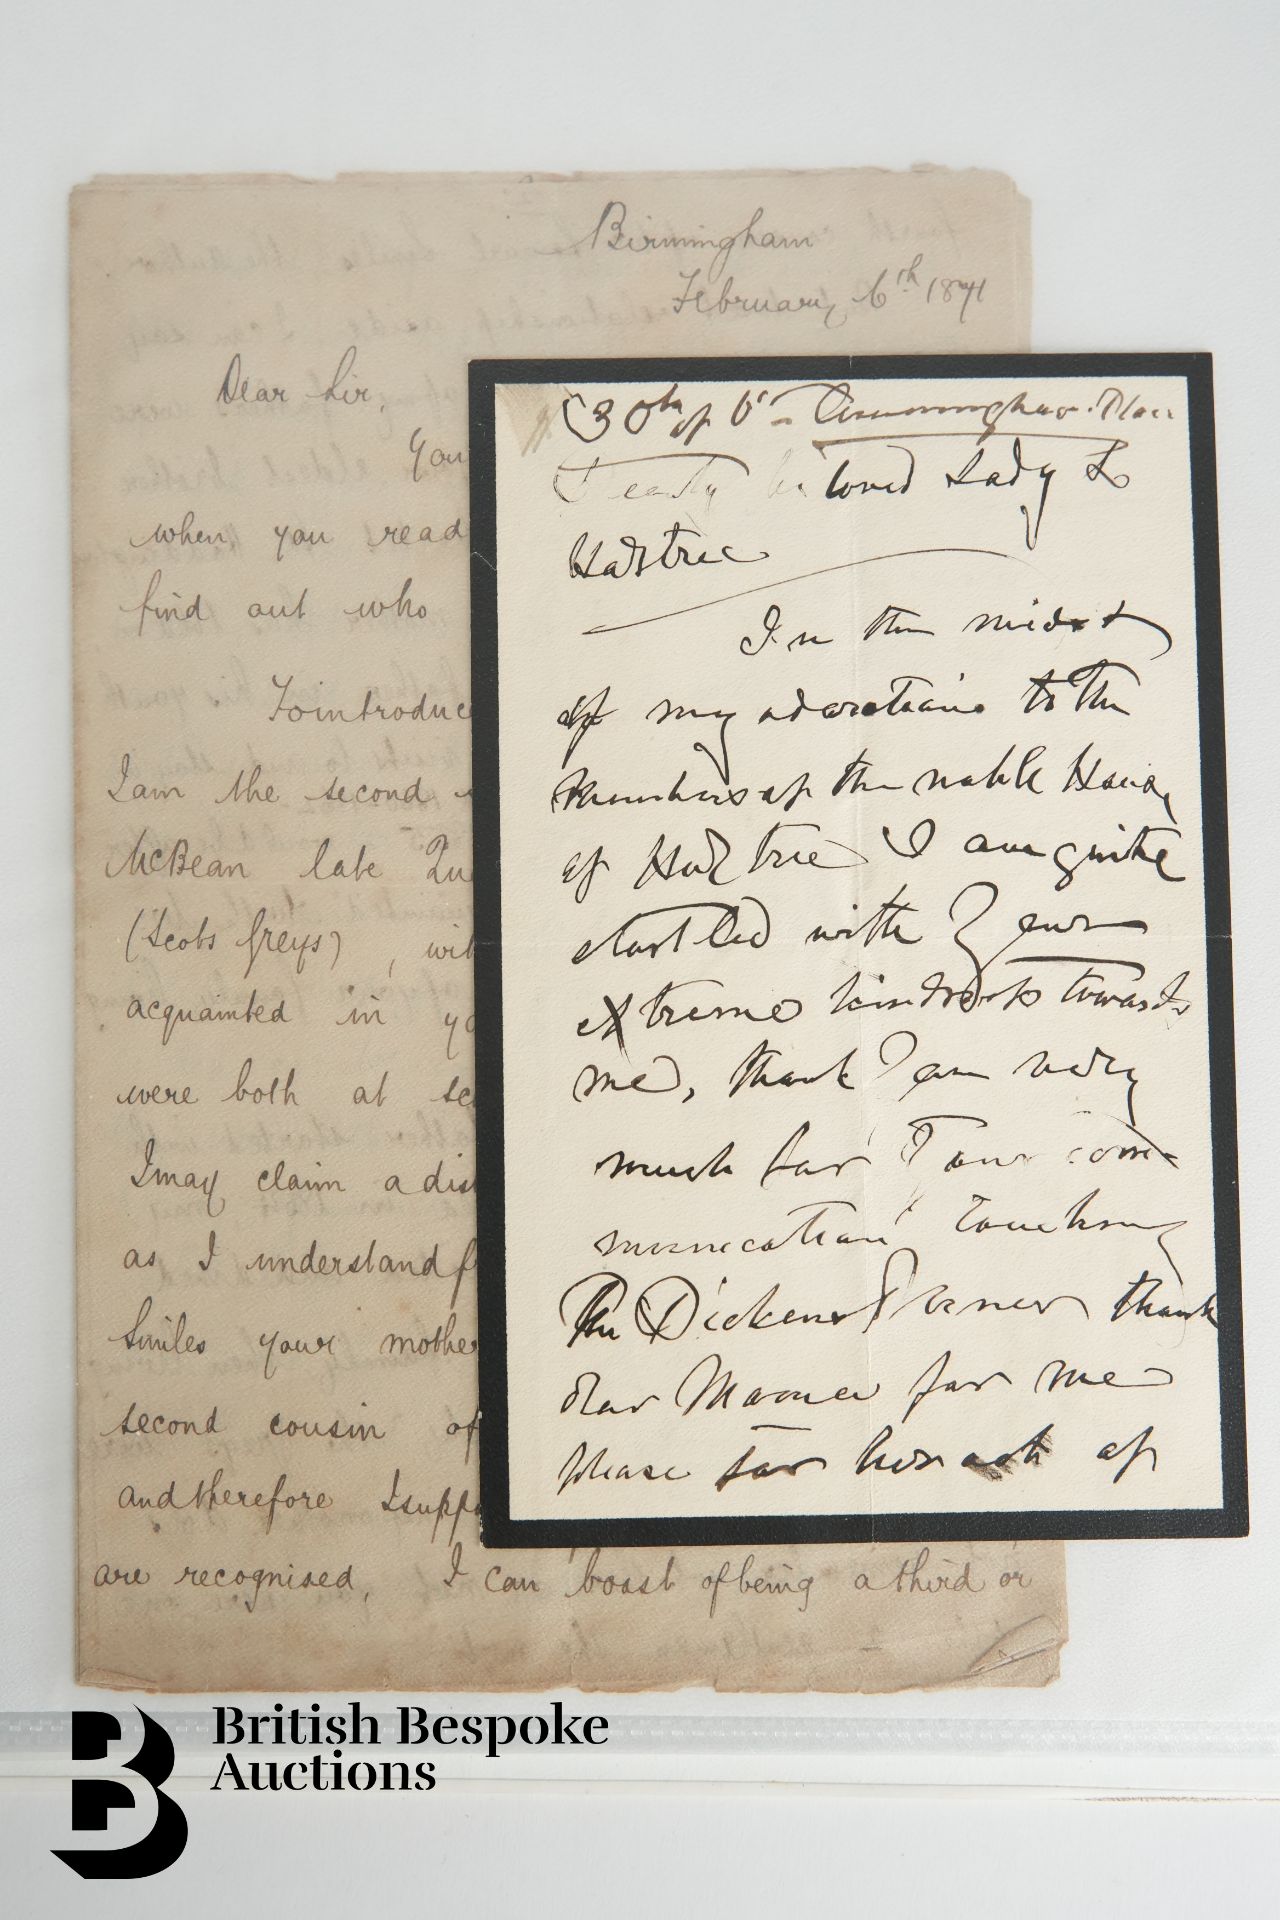 Birmingham
February 6th 1871
Dear Sir,
You
when you read
find out who
To introduce
I am the second
McBean late Qu
(Scots Greys), wit
acquainted in yo
were both at sc
I may claim a dis
as I understand f
Smiles your mother
second cousin of
and therefore I supp
are recognised, I can boast of being a third or
30th of
loved Lady
In the midst
of my adorations to the
Members of the noble House
of I am quite
startled with Your
extreme kindness towards
me, thank You very
much for Your com-
munication touching
the Dickens thank
dear for me
please for her act of
British Bespoke
Auctions